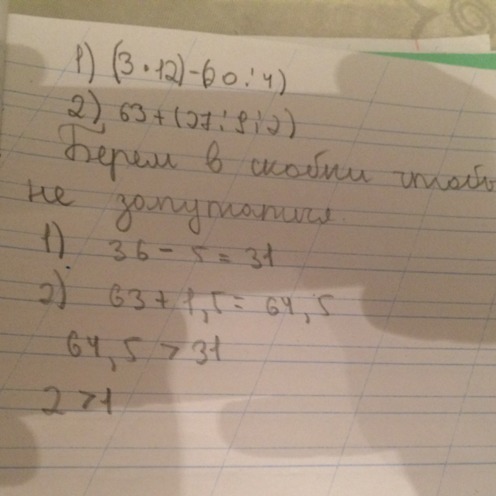 1) (3•12)-60:4)
2) 63+(27:9:2)
Берем в скобки чтобы
не запутаться
1) 36-5=31
2) 63+1,5=64,5
64,5>31
2>1